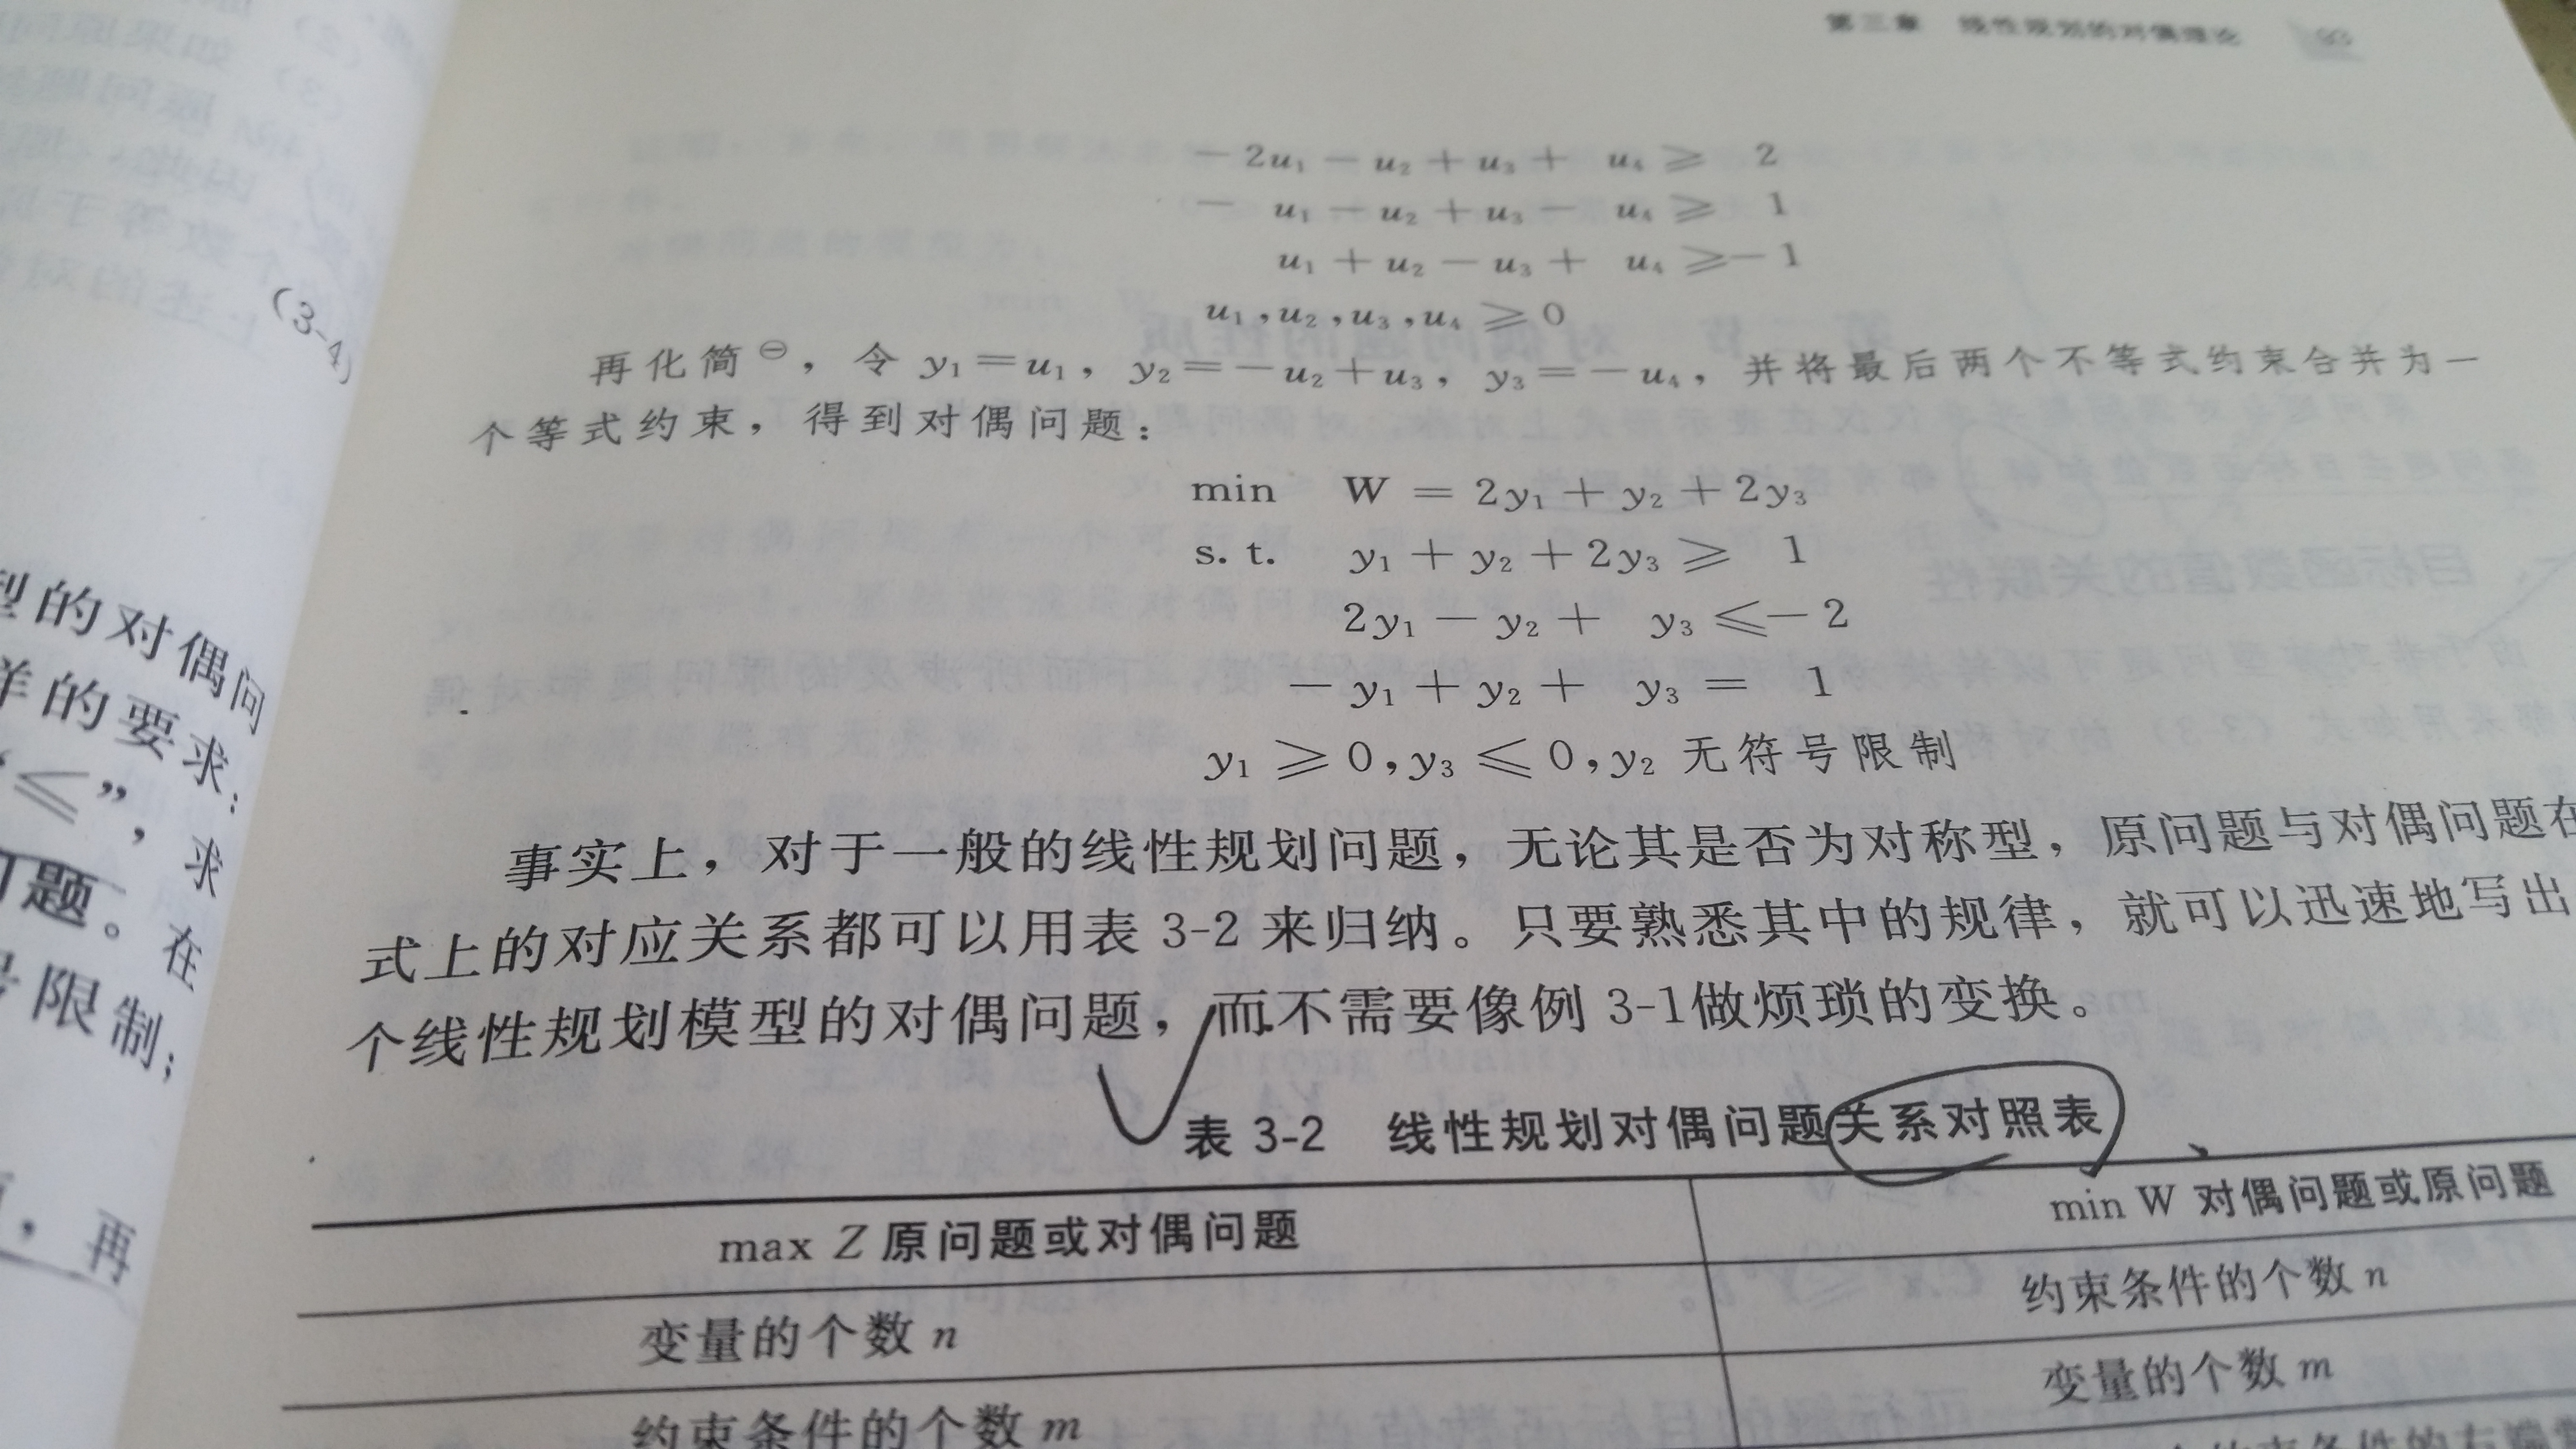 第三章 线性规划的对偶理论 93
(3-4)
型的对偶问
样的要求:
“≤”，求
问题。在
号限制;
，再
− 2u₁ − u₂ + u₃ + u₄ ≥ 2
− u₁ − u₂ + u₃ − u₄ ≥ 1
u₁ + u₂ − u₃ + u₄ ≥ − 1
u₁,u₂,u₃,u₄ ≥ 0
再化简⊖，令 y₁=u₁，y₂=−u₂+u₃，y₃=−u₄，并将最后两个不等式约束合并为一
个等式约束，得到对偶问题：
min W = 2y₁ + y₂ + 2y₃
s. t. y₁ + y₂ + 2y₃ ≥ 1
2y₁ − y₂ + y₃ ≤ − 2
− y₁ + y₂ + y₃ = 1
y₁ ≥ 0,y₃ ≤ 0,y₂ 无符号限制
事实上，对于一般的线性规划问题，无论其是否为对称型，原问题与对偶问题在
式上的对应关系都可以用表 3-2 来归纳。只要熟悉其中的规律，就可以迅速地写出
个线性规划模型的对偶问题，而不需要像例 3-1做烦琐的变换。
表 3-2 线性规划对偶问题关系对照表
max Z 原问题或对偶问题 min W 对偶问题或原问题
变量的个数 n 约束条件的个数 n
约束条件的个数 m 变量的个数 m